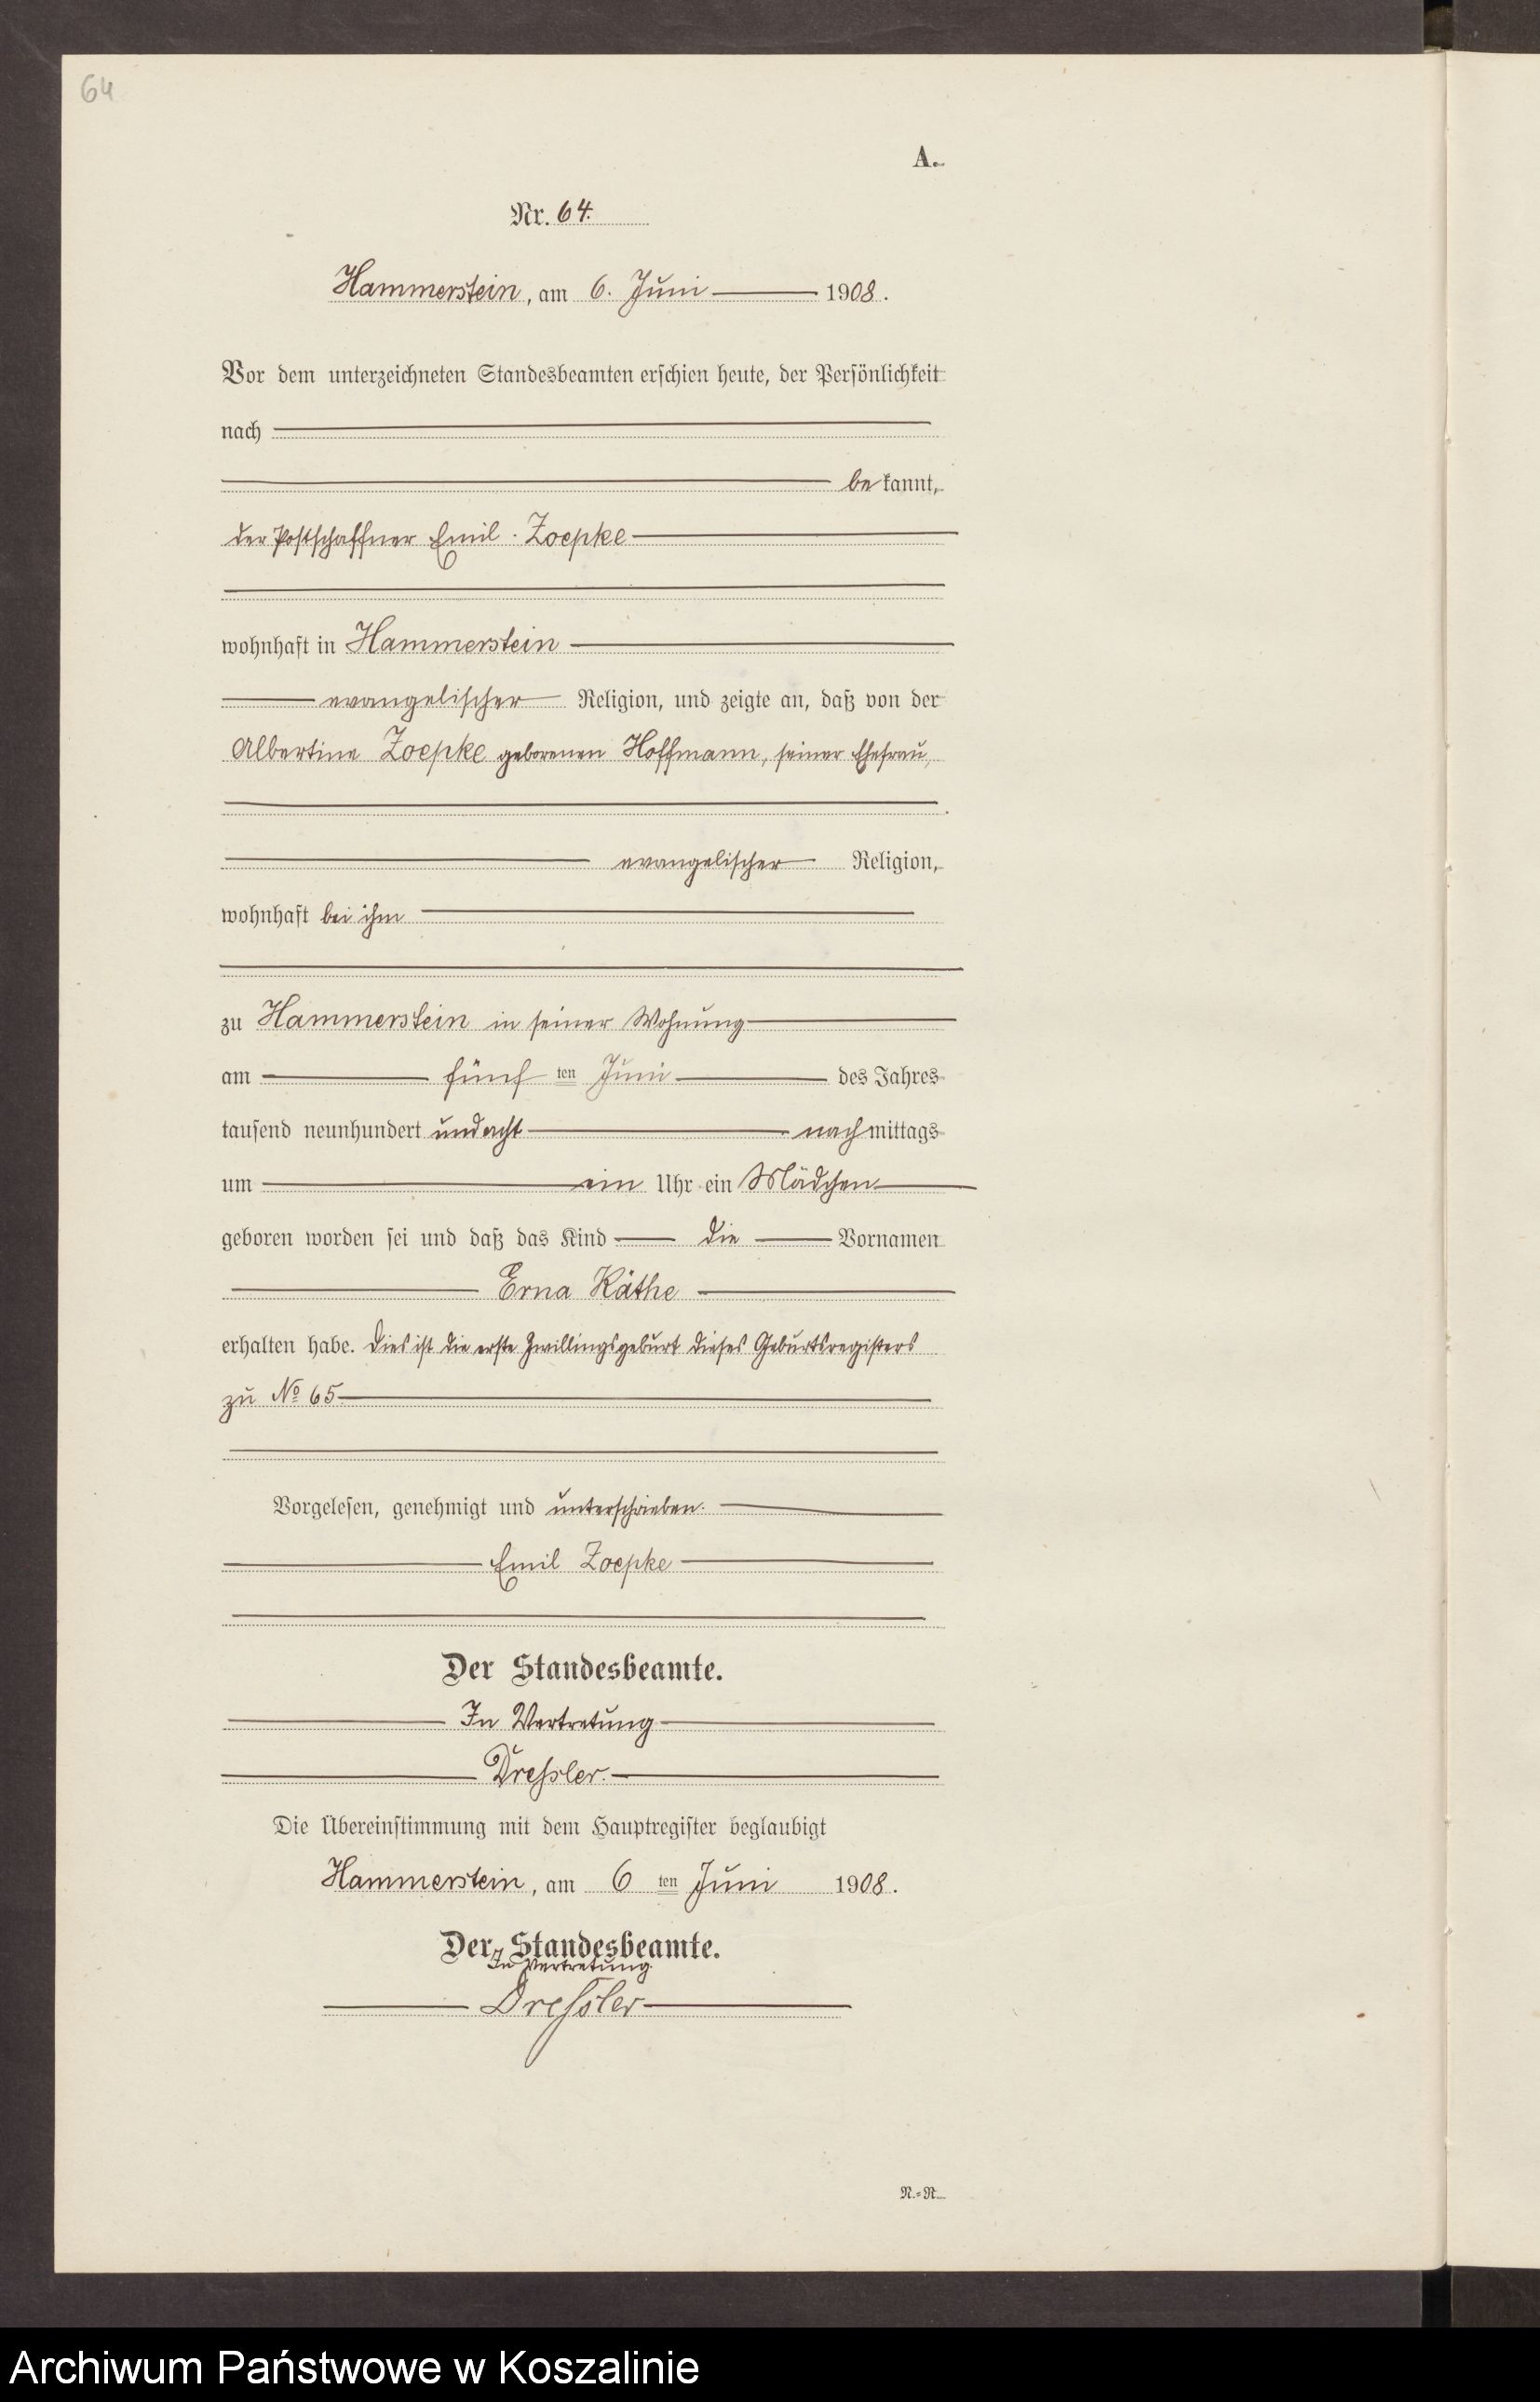 64
A.
Nr. 64.
Hammerstein, am 6. Juni 1908.
Vor dem unterzeichneten Standesbeamten erschien heute, der Persönlichkeit
nach
bekannt,
der Postschaffner Emil Zoepke
wohnhaft in Hammerstein
evangelischer Religion, und zeigte an, daß von der
Albertine Zoepke geborenen Hoffmann, seiner Ehefrau,
evangelischer Religion,
wohnhaft bei ihm
zu Hammerstein in seiner Wohnung
am fünf ten Juni des Jahres
tausend neunhundert und acht nachmittags
um ein Uhr ein Mädchen
geboren worden sei und daß das Kind die Vornamen
Erna Käthe
erhalten habe. Dies ist die erste Zwillingsgeburt dieses Geburtsregisters
zu No 65
Vorgelesen, genehmigt und unterschrieben.
Emil Zoepke
Der Standesbeamte.
In Vertretung
Dreßler.
Die Übereinstimmung mit dem Hauptregister beglaubigt
Hammerstein, am 6 ten Juni 1908.
Der Standesbeamte.
In Vertretung.
Dreßler
N.=R.
Archiwum Państwowe w Koszalinie